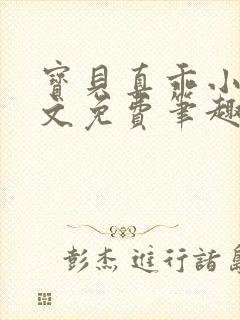 寶貝真乖小
文免費筆趣
彭杰進行諸